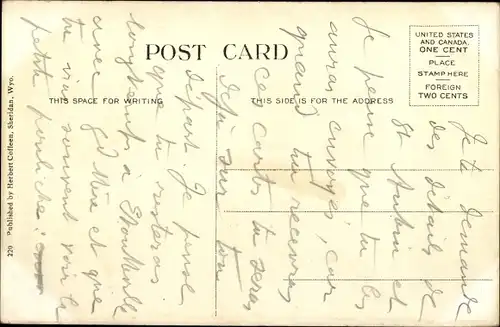 POST CARD
THIS SPACE FOR WRITING
THIS SIDE IS FOR THE ADDRESS
UNITED STATES
AND CANADA
ONE CENT
PLACE
STAMP HERE
FOREIGN
TWO CENTS
220 Published by Herbert Coffeen, Sheridan, Wyo.
Je te demande
des détails de
St Aubin et
Je pense que tu les
auras envoyés, car
quand tu recevras
ces cartes tu seras
Déjà sur ton
départ. Je pense
que tu resteras
longtemps à
avec gd Mère et que
tu vas souvent voir la
petite